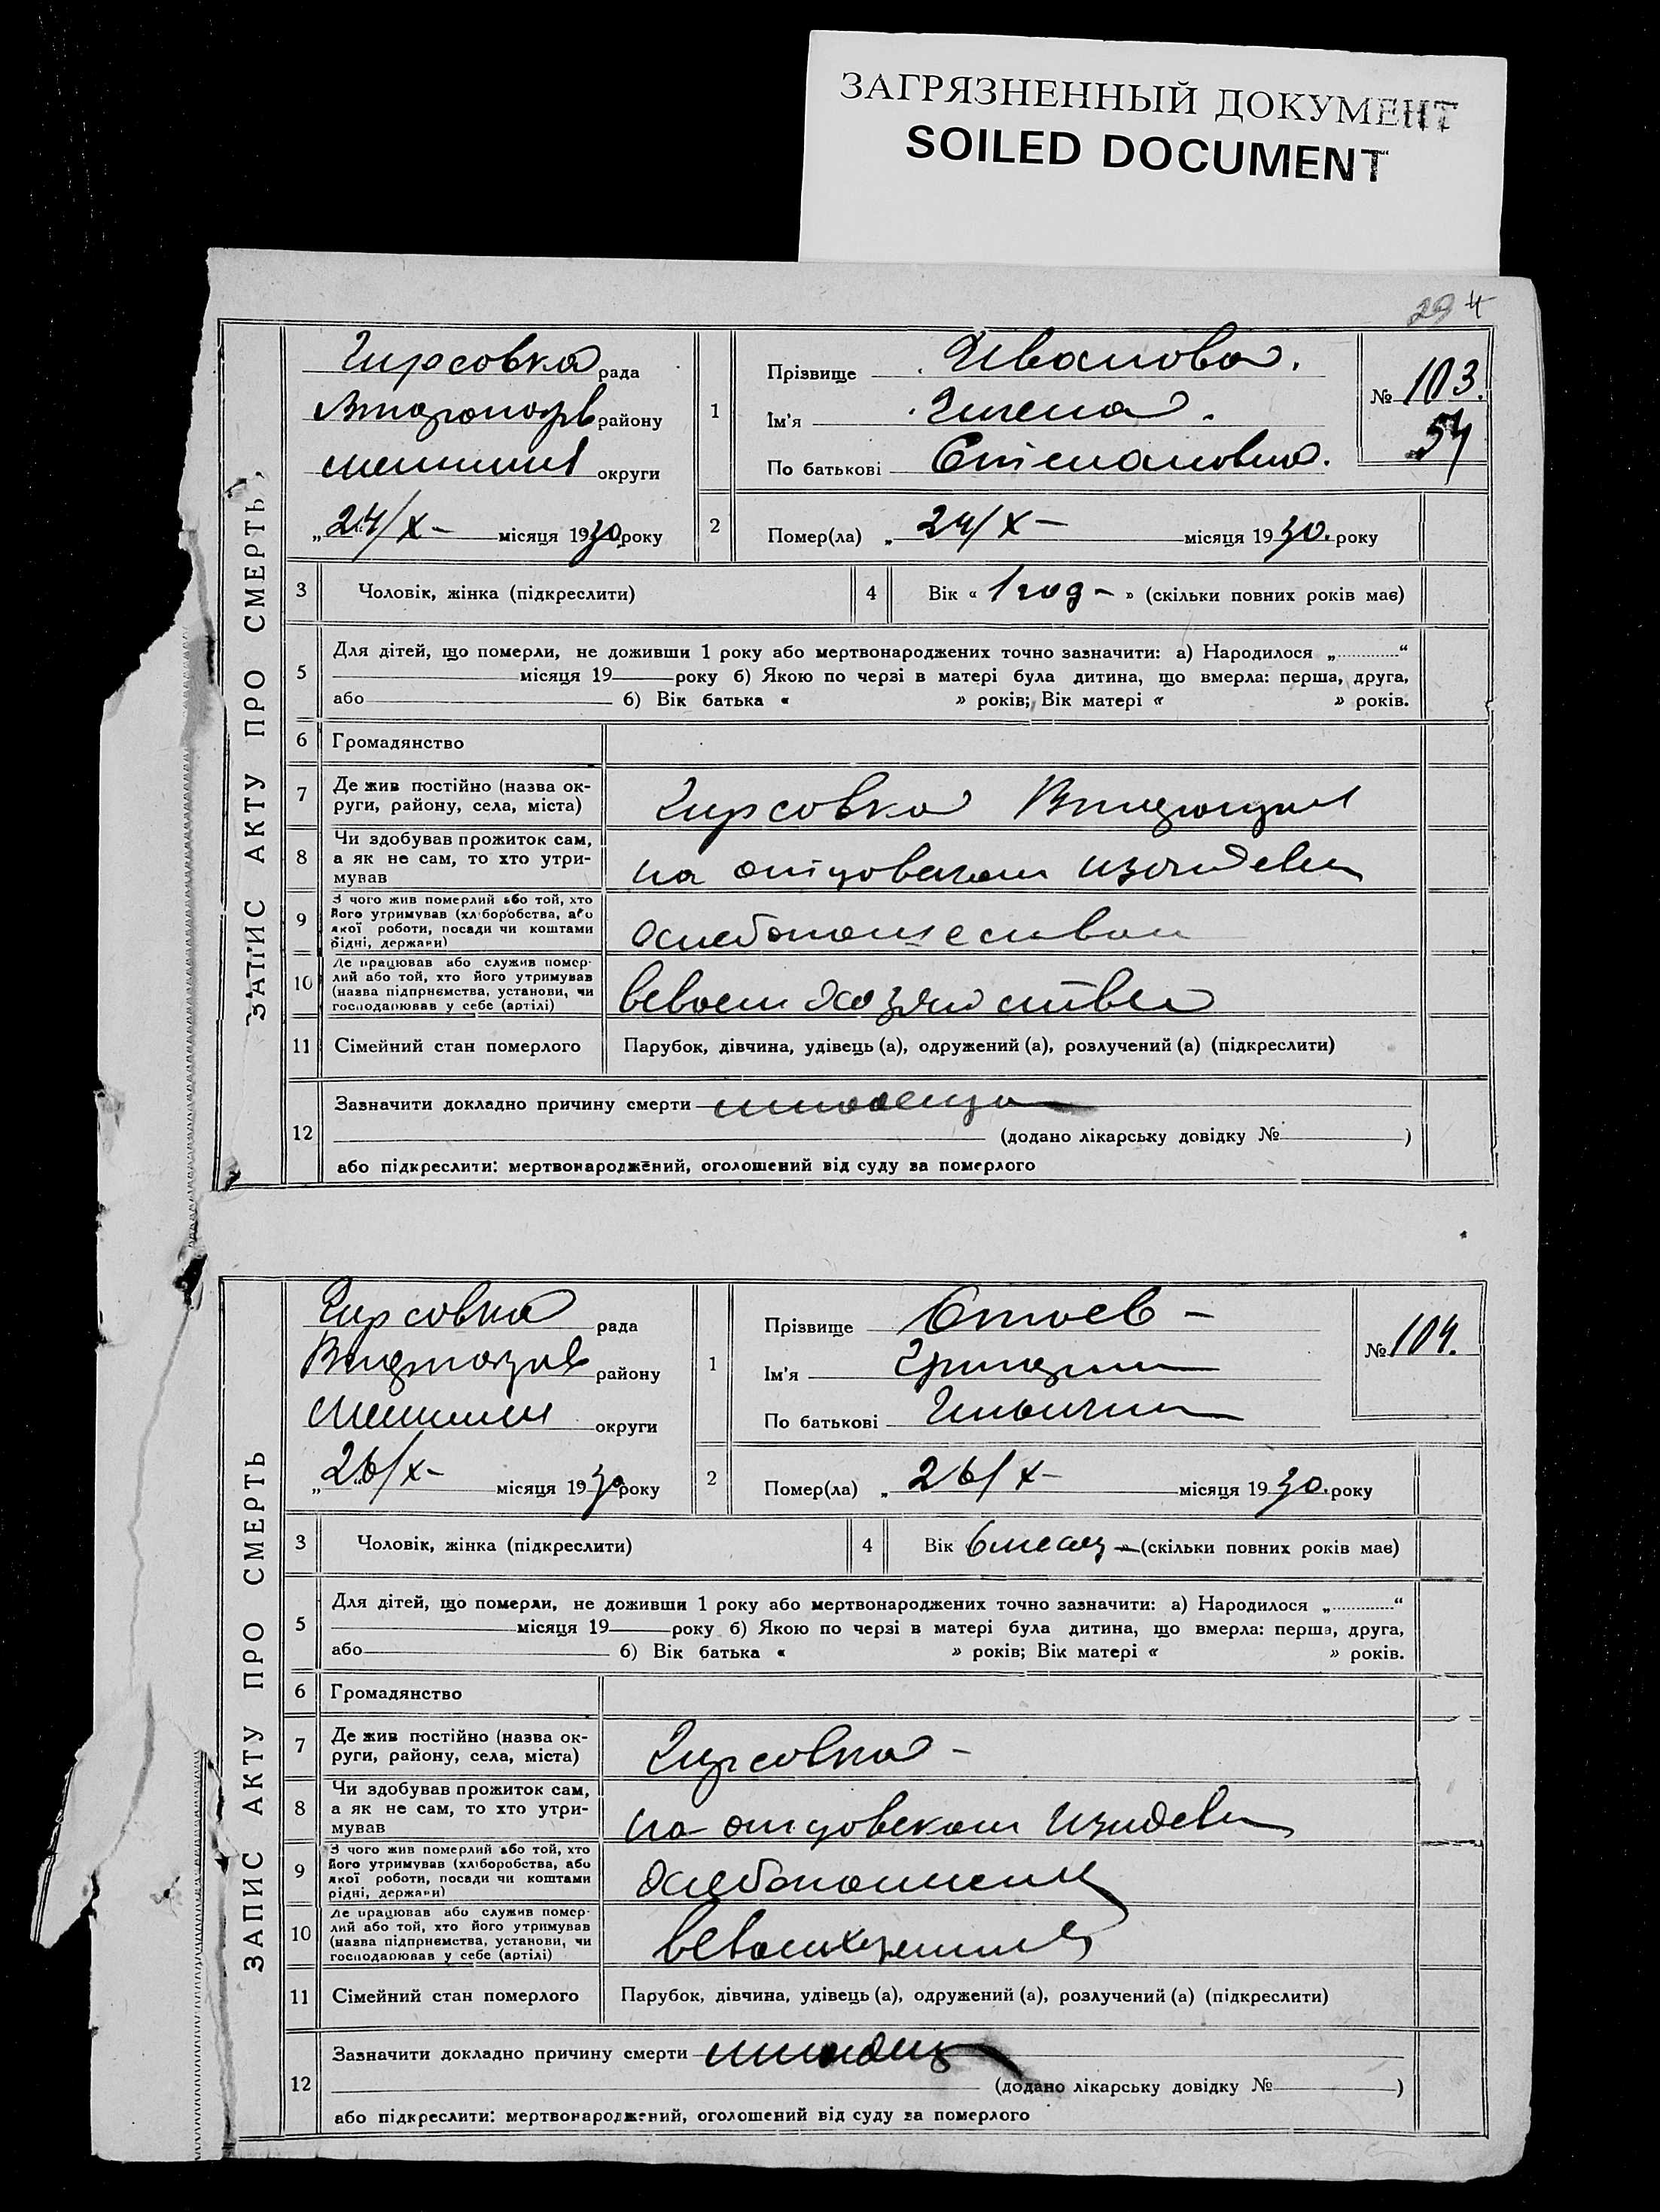 ЗАГРЯЗНЕННЫЙ ДОКУМЕНТ
SOILED DOCUMENT
29 4
ЗАПИС АКТУ ПРО СМЕРТЬ
Гирсовка рада
району
округи
„24/X- місяця 1930 року
1
Прізвище Иванова.
Ім'я
По батькові Степановна.
№ 103.
54
2
Помер(ла) „ 24/X- місяця 1930. року
3 Чоловік, жінка (підкреслити)
4 Вік « 1 год- » (скільки повних років має)
5
Для дітей, що померли, не доживши 1 року або мертвонароджених точно зазначити: а) Народилося „............“
місяця 19 року б) Якою по черзі в матері була дитина, що вмерла: перша, друга,
або б) Вік батька « » років; Вік матері « » років.
6 Громадянство
7
Де жив постійно (назва ок-
руги, району, села, міста)
Гирсовка
8
Чи здобував прожиток сам,
а як не сам, то хто утри-
мував
на отцовском
9
З чого жив померлий або той, хто
його утримував (хліборобства, або
якої роботи, посади чи коштами
рідні, держави)
10
Де працював або служив помер-
лий або той, хто його утримував
(назва підприємства, установи, чи
господарював у себе (артілі)
11 Сімейний стан померлого
Парубок, дівчина, удівець (а), одружений (а), розлучений (а) (підкреслити)
12
Зазначити докладно причину смерти
(додано лікарську довідку № )
або підкреслити: мертвонароджений, оголошений від суду за померлого
ЗАПИС АКТУ ПРО СМЕРТЬ
Гирсовка рада
району
округи
„26/X- місяця 1930 року
1
Прізвище
Ім'я
По батькові
№ 104.
2
Помер(ла) „ 26/X- місяця 1930. року
3 Чоловік, жінка (підкреслити)
4 Вік 6 месяц - (скільки повних років має)
5
Для дітей, що померли, не доживши 1 року або мертвонароджених точно зазначити: а) Народилося „............“
місяця 19 року б) Якою по черзі в матері була дитина, що вмерла: перша, друга,
або б) Вік батька « » років; Вік матері « » років.
6 Громадянство
7
Де жив постійно (назва ок-
руги, району, села, міста)
Гирсовка -
8
Чи здобував прожиток сам,
а як не сам, то хто утри-
мував
на отцовском
9
З чого жив померлий або той, хто
його утримував (хліборобства, або
якої роботи, посади чи коштами
рідні, держави)
10
Де працював або служив помер-
лий або той, хто його утримував
(назва підприємства, установи, чи
господарював у себе (артілі)
11 Сімейний стан померлого
Парубок, дівчина, удівець (а), одружений (а), розлучений (а) (підкреслити)
12
Зазначити докладно причину смерти
(додано лікарську довідку № )
або підкреслити: мертвонароджений, оголошений від суду за померлого